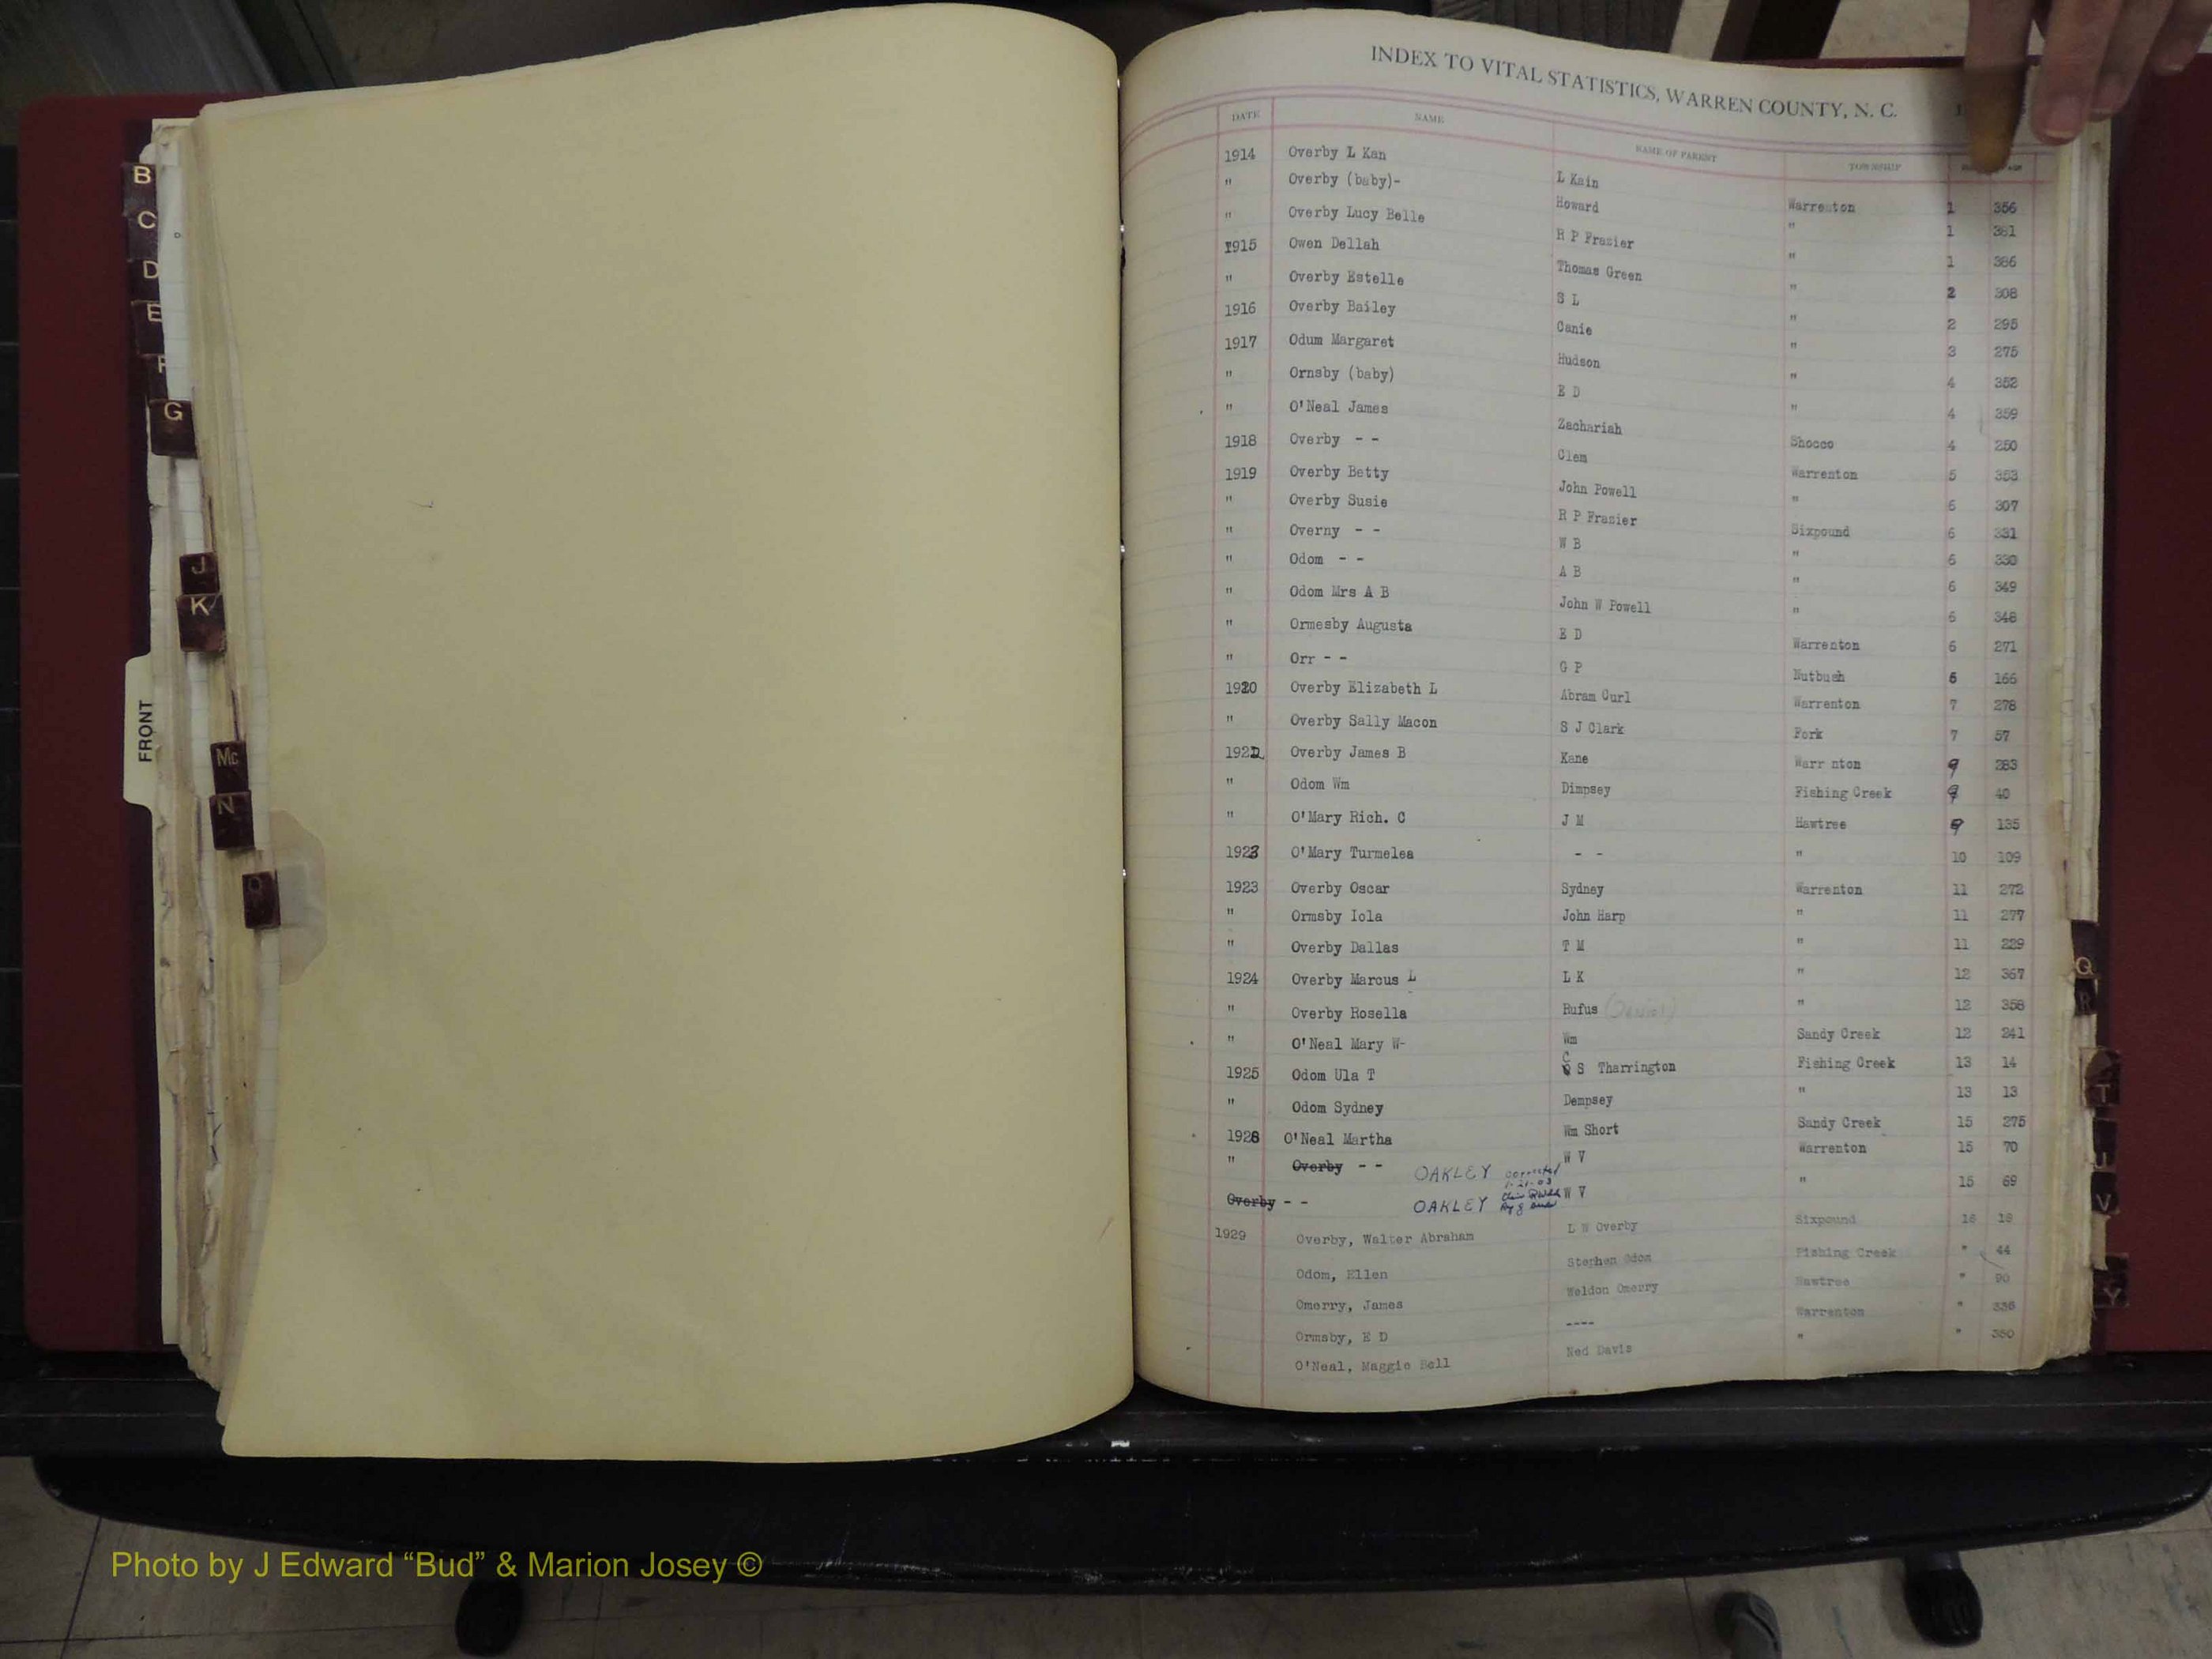 INDEX TO VITAL STATISTICS, WARREN COUNTY, N. C.
DATE NAME NAME OF PARENT TOWNSHIP
1914 Overby L Kan L Kain Warrenton 1 356
" Overby (baby)- Howard " 1 381
" Overby Lucy Belle R P Frazier " 1 386
1915 Owen Dellah Thomas Green " 2 308
" Overby Estelle S L " 2 295
1916 Overby Bailey Canie " 3 275
1917 Odum Margaret Hudson " 4 352
" Ornsby (baby) E D " 4 359
" O'Neal James Zachariah Shocco 4 250
1918 Overby - - Clem Warrenton 5 353
1919 Overby Betty John Powell " 6 307
" Overby Susie R P Frazier Sixpound 6 331
" Overny - - W B " 6 330
" Odom - - A B " 6 349
" Odom Mrs A B John W Powell " 6 348
" Ormesby Augusta E D Warrenton 6 271
" Orr - - G P Nutbush 6 166
1920 Overby Elizabeth L Abram Curl Warrenton 7 278
" Overby Sally Macon S J Clark Fork 7 57
1922 Overby James B Kane Warr nton 9 283
" Odom Wm Dimpsey Fishing Creek 9 40
" O'Mary Rich. C J M Hawtree 9 135
1923 O'Mary Turmelea - - " 10 109
1923 Overby Oscar Sydney Warrenton 11 272
" Ormsby Iola John Harp " 11 277
" Overby Dallas T M " 11 229
1924 Overby Marcus L L K " 12 367
" Overby Rosella Rufus " 12 358
" O'Neal Mary W- Wm Sandy Creek 12 241
1925 Odom Ula T C S Tharrington Fishing Creek 13 14
" Odom Sydney Dempsey " 13 13
1928 O'Neal Martha Wm Short Sandy Creek 15 275
" Overby - - OAKLEY corrected 1-21-03 W V Warrenton 15 70
Overby - - OAKLEY W V " 15 69
1929 Overby, Walter Abraham L W Overby Sixpound 16 18
Odom, Ellen Stephen Odom Fishing Creek " 44
Omerry, James Weldon Omerry Hawtree " 90
Ormsby, E D ---- Warrenton " 336
O'Neal, Maggie Bell Ned Davis " " 350
B
C
D
E
F
G
J
K
FRONT
Mc
N
O
Q
R
T
U
V
Y
Photo by J Edward “Bud” & Marion Josey ©